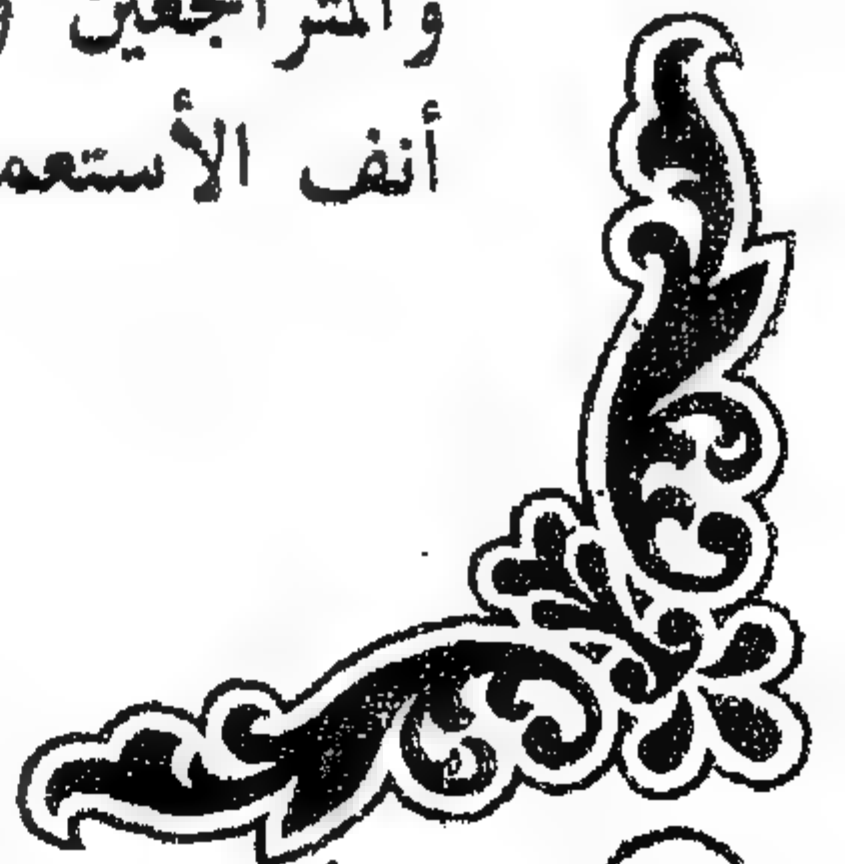 والمتراجعين
أنف الأستعم